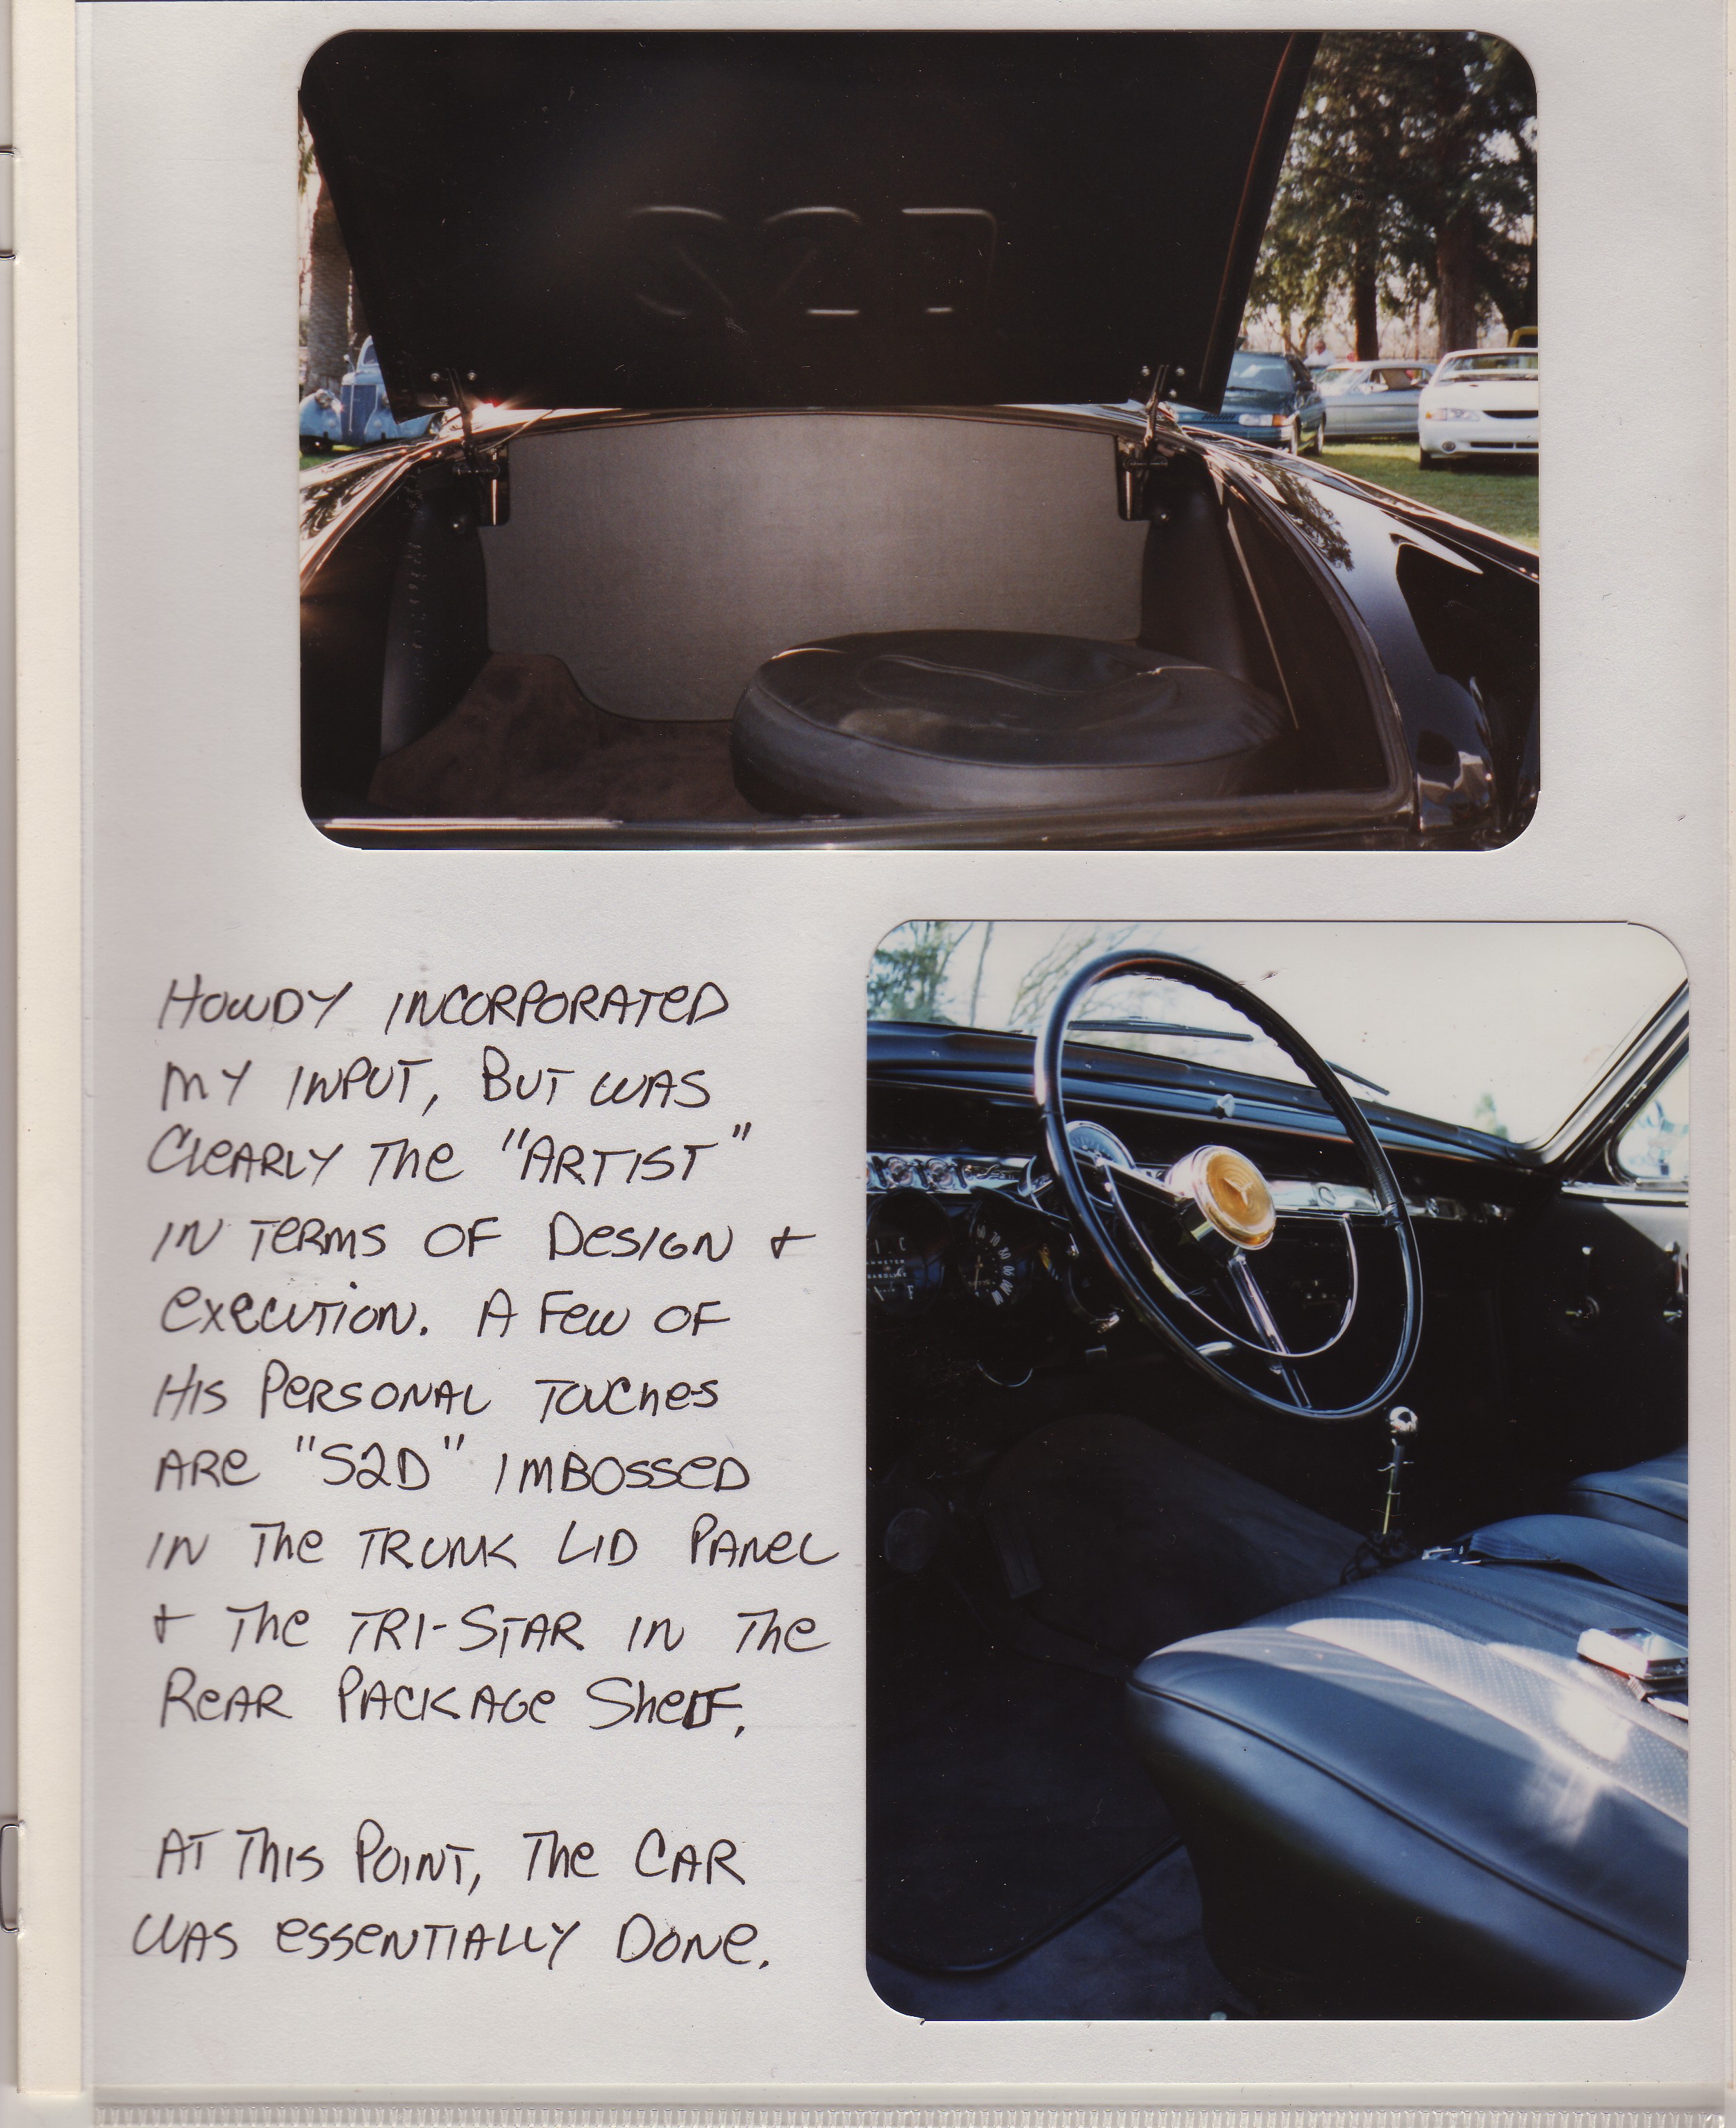 S2D
HOWDY INCORPORATED
MY INPUT, BUT WAS
CLEARLY THE "ARTIST"
IN TERMS OF DESIGN +
EXECUTION. A FEW OF
HIS PERSONAL TOUCHES
ARE "S2D" IMBOSSED
IN THE TRUNK LID PANEL
+ THE TRI-STAR IN THE
REAR PACKAGE SHELF.
AT THIS POINT, THE CAR
WAS ESSENTIALLY DONE.